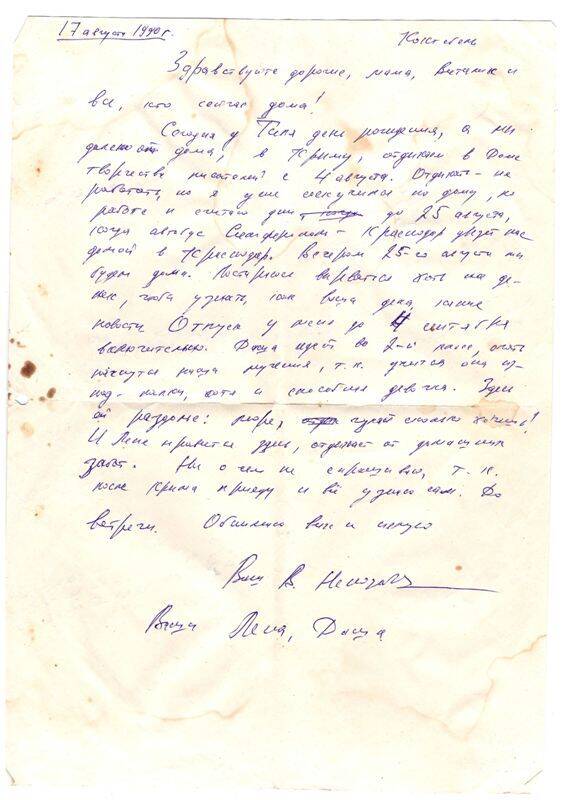 17 августа 1990 г.
Коктебель
Здравствуйте дорогие, мама, Виталик и
все, кто сейчас дома!
Сегодня у Гали день рождения, а мы
далеко от дома, в Крыму, отдыхаем в Доме
творчества писателей с 4 августа. Отдыхать - не
работать, но я уже соскучился по дому, по
работе и считаю дни до 25 августа,
когда автобус Симферополь - Краснодар увезет нас
домой в Краснодар. Вечером 25-го августа мы
будем дома. Постараюсь вырваться хоть на де-
нек, чтобы узнать, как ваши дела, какие
новости. Отпуск у меня до 4 сентября
включительно. Даша идет во 2-й класс, опять
начнутся наши мучения, т.к. учится она из-
под палки, хотя и способная девочка. Здесь
ей раздолье: море, гуляй сколько хочешь!
И Лене нравится здесь, отдыхает от домашних
забот. Ни о чем не спрашиваю, т.к.
после Крыма приеду и всё узнаю сам. До
встречи. Обнимаю вас и целую
Ваш В.
Ваши Лена, Даша